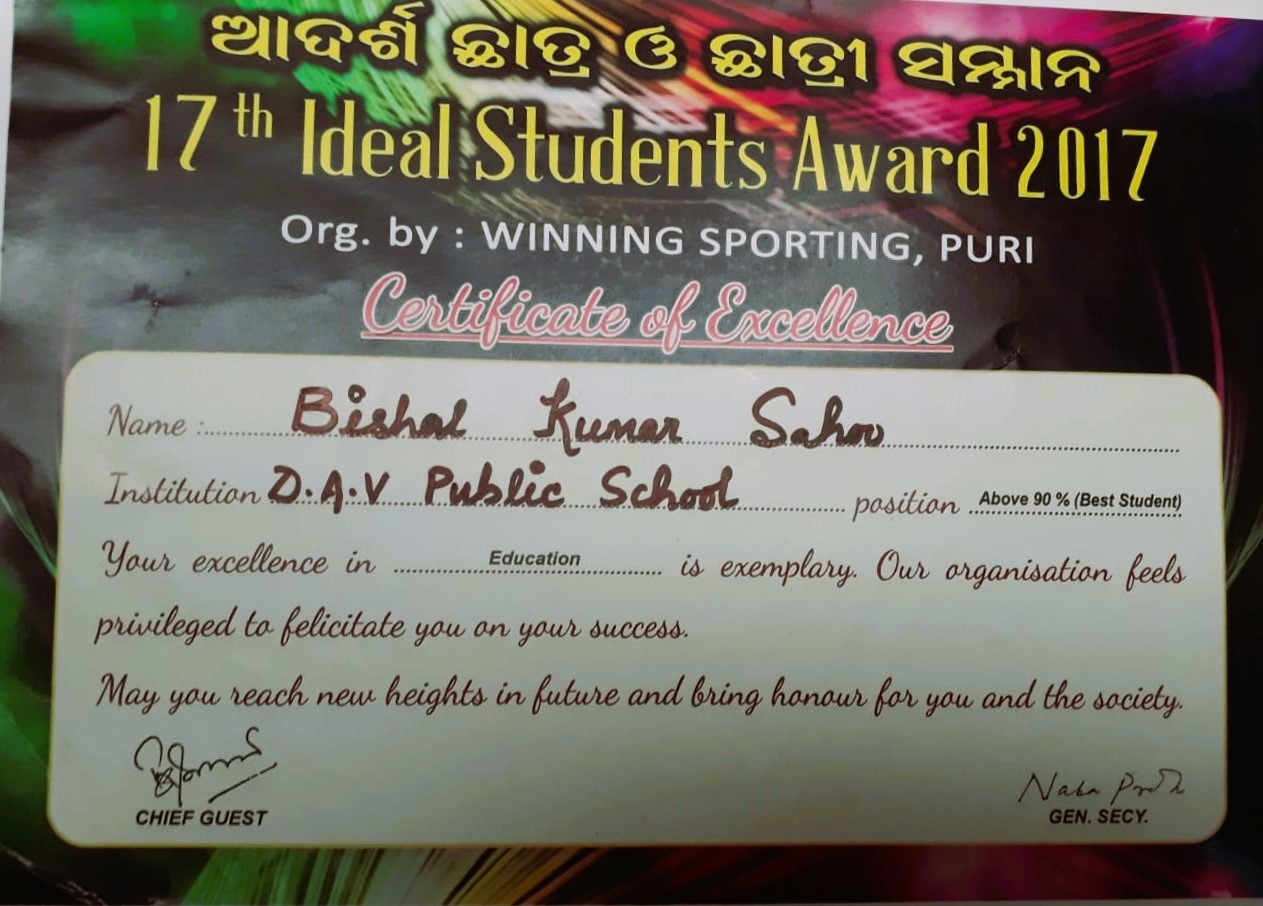 ଆଦର୍ଶ ଛାତ୍ର ଓ ଛାତ୍ରୀ ସମ୍ମାନ
17th Ideal Students Award 2017
Org. by : WINNING SPORTING, PURI
Certificate of Excellence
Name : Bishal Kumar Sahoo
Institution D.A.V Public School position Above 90 % (Best Student)
Your excellence in Education is exemplary. Our organisation feels
privileged to felicitate you on your success.
May you reach new heights in future and bring honour for you and the society.
Naba
CHIEF GUEST GEN. SECY.